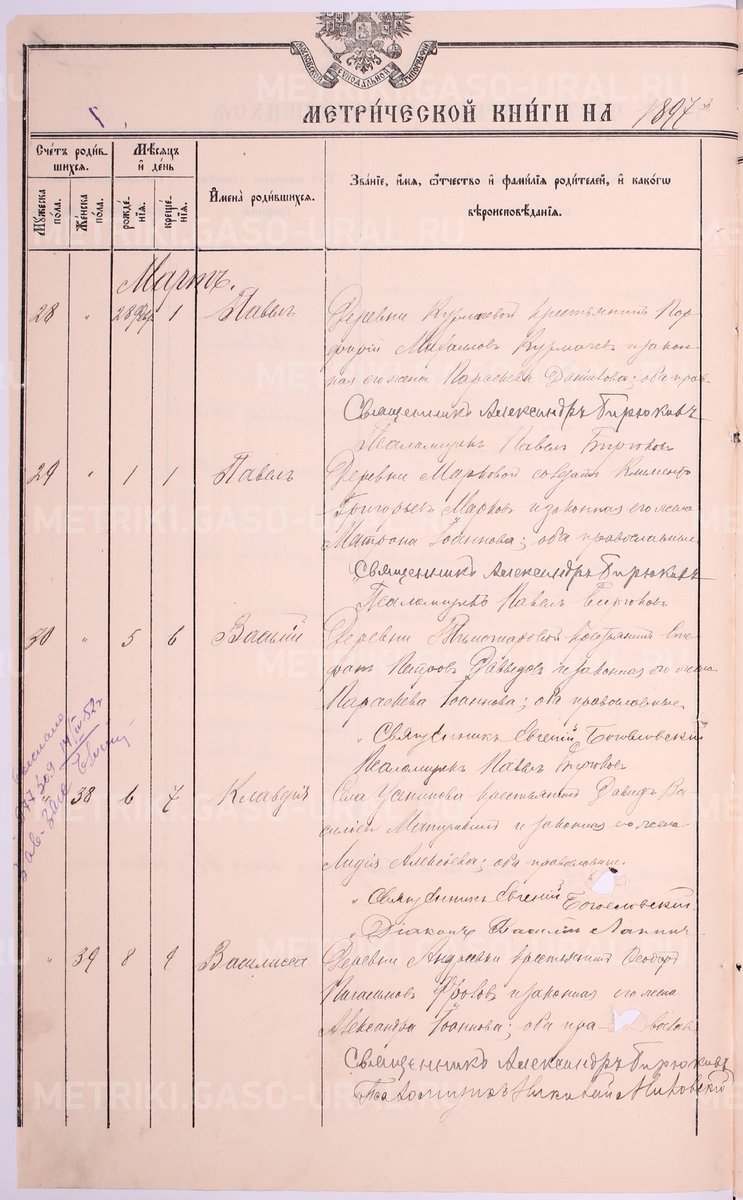 МОСКОВСКОЙ СѴНОДАЛЬНОЙ ТИПОГРАФІИ
МЕТРИ́ЧЕСКОЙ КНИ́ГИ НА 1897й
I.
Сче́тъ роди́в-
шихся.
Мѣ́сяцъ
и҆ де́нь
Му́жеска
по́ла.
Же́нска
по́ла.
рожде́-
нїя.
креще́-
нїя.
И҆мена̀ роди́вшихся.
Зва́нїе, и҆́мя, ѻ҆́тчество и҆ фами́лїя роди́телей, и҆ како́гѡ
вѣроисповѣ́данїя.
Мартъ.
28 " 28 Фев. 1 Павелъ Деревни Курмачевой крестьянинъ Пор-
фирій Михаиловъ Курмачевъ и закон-
ная его жена Параскева Данилова; оба прав.
Священникъ Александръ Бирюковъ
Псаломщикъ Павелъ Бирюковъ
29 " 1 1 Павелъ Деревни Марковой солдатъ Климентъ
Григорьевъ Марковъ и законная его жена
Матрона Іоаннова; оба православные.
Священникъ Александръ Бирюковъ
Псаломщикъ Павелъ Бирюковъ
30 " 5 6 Василій Деревни крестьянинъ Сте-
фанъ Петровъ Давыдовъ и законная его жена
Параскева Іоаннова; оба православные.
" Священникъ Евгеній Богословскій
Псаломщикъ Павелъ Бирюковъ
" 38 6 7 Клавдія Села крестьянинъ Давидъ Ва-
сильевъ и законная его жена
Лидія Алексіева; оба православные.
" Священникъ Евгеній Богословскій
" Діаконъ Василій Лаппинъ
" 39 8 9 Василисса Деревни Андреевки крестьянинъ Ѳеодоръ
и законная его жена
Александра Іоаннова; оба пра вослав
Священникъ Александръ Бирюковъ
Псаломщикъ Николай
METRIKI.GASO-URAL.RU